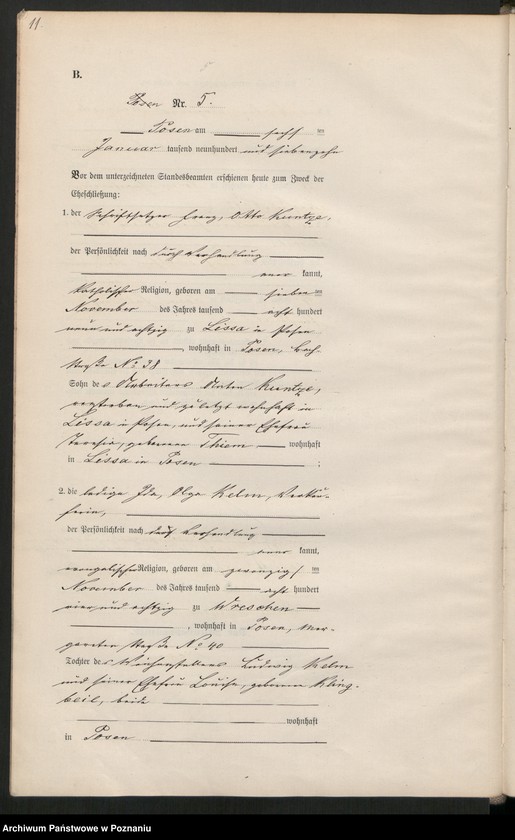 11
B.
Posen Nr. 5.
Posen am sechs ten
Januar tausend neunhundert und siebenzehn
Vor dem unterzeichneten Standesbeamten erschienen heute zum Zweck der
Eheschließung:
1. der Schriftsetzer Franz, Otto Kuntze,
der Persönlichkeit nach durch Verhandlung
aner kannt,
katholischer Religion, geboren am sieben ten
November des Jahres tausend acht hundert
neun und achtzig zu Lissa in Posen
, wohnhaft in Posen, Bach-
straße No 38
Sohn des Arbeiters Anton Kuntze,
verstorben und zuletzt wohnhaft in
Lissa in Posen, und seiner Ehefrau
Theresia, geborenen Thiem wohnhaft
in Lissa in Posen ;
2. die ledige Ida, Olga Kelm, Verkäu-
ferin,
der Persönlichkeit nach durch Verhandlung
aner kannt,
evangelischer Religion, geboren am zwanzigs ten
November des Jahres tausend acht hundert
vier und achtzig zu Wreschen
, wohnhaft in Posen, Mar-
garethen straße No 40
Tochter des Weichenstellers Ludwig Kelm
und seiner Ehefrau Louise, geborenen Kling-
beil, beide
wohnhaft
in Posen
Archiwum Państwowe w Poznaniu